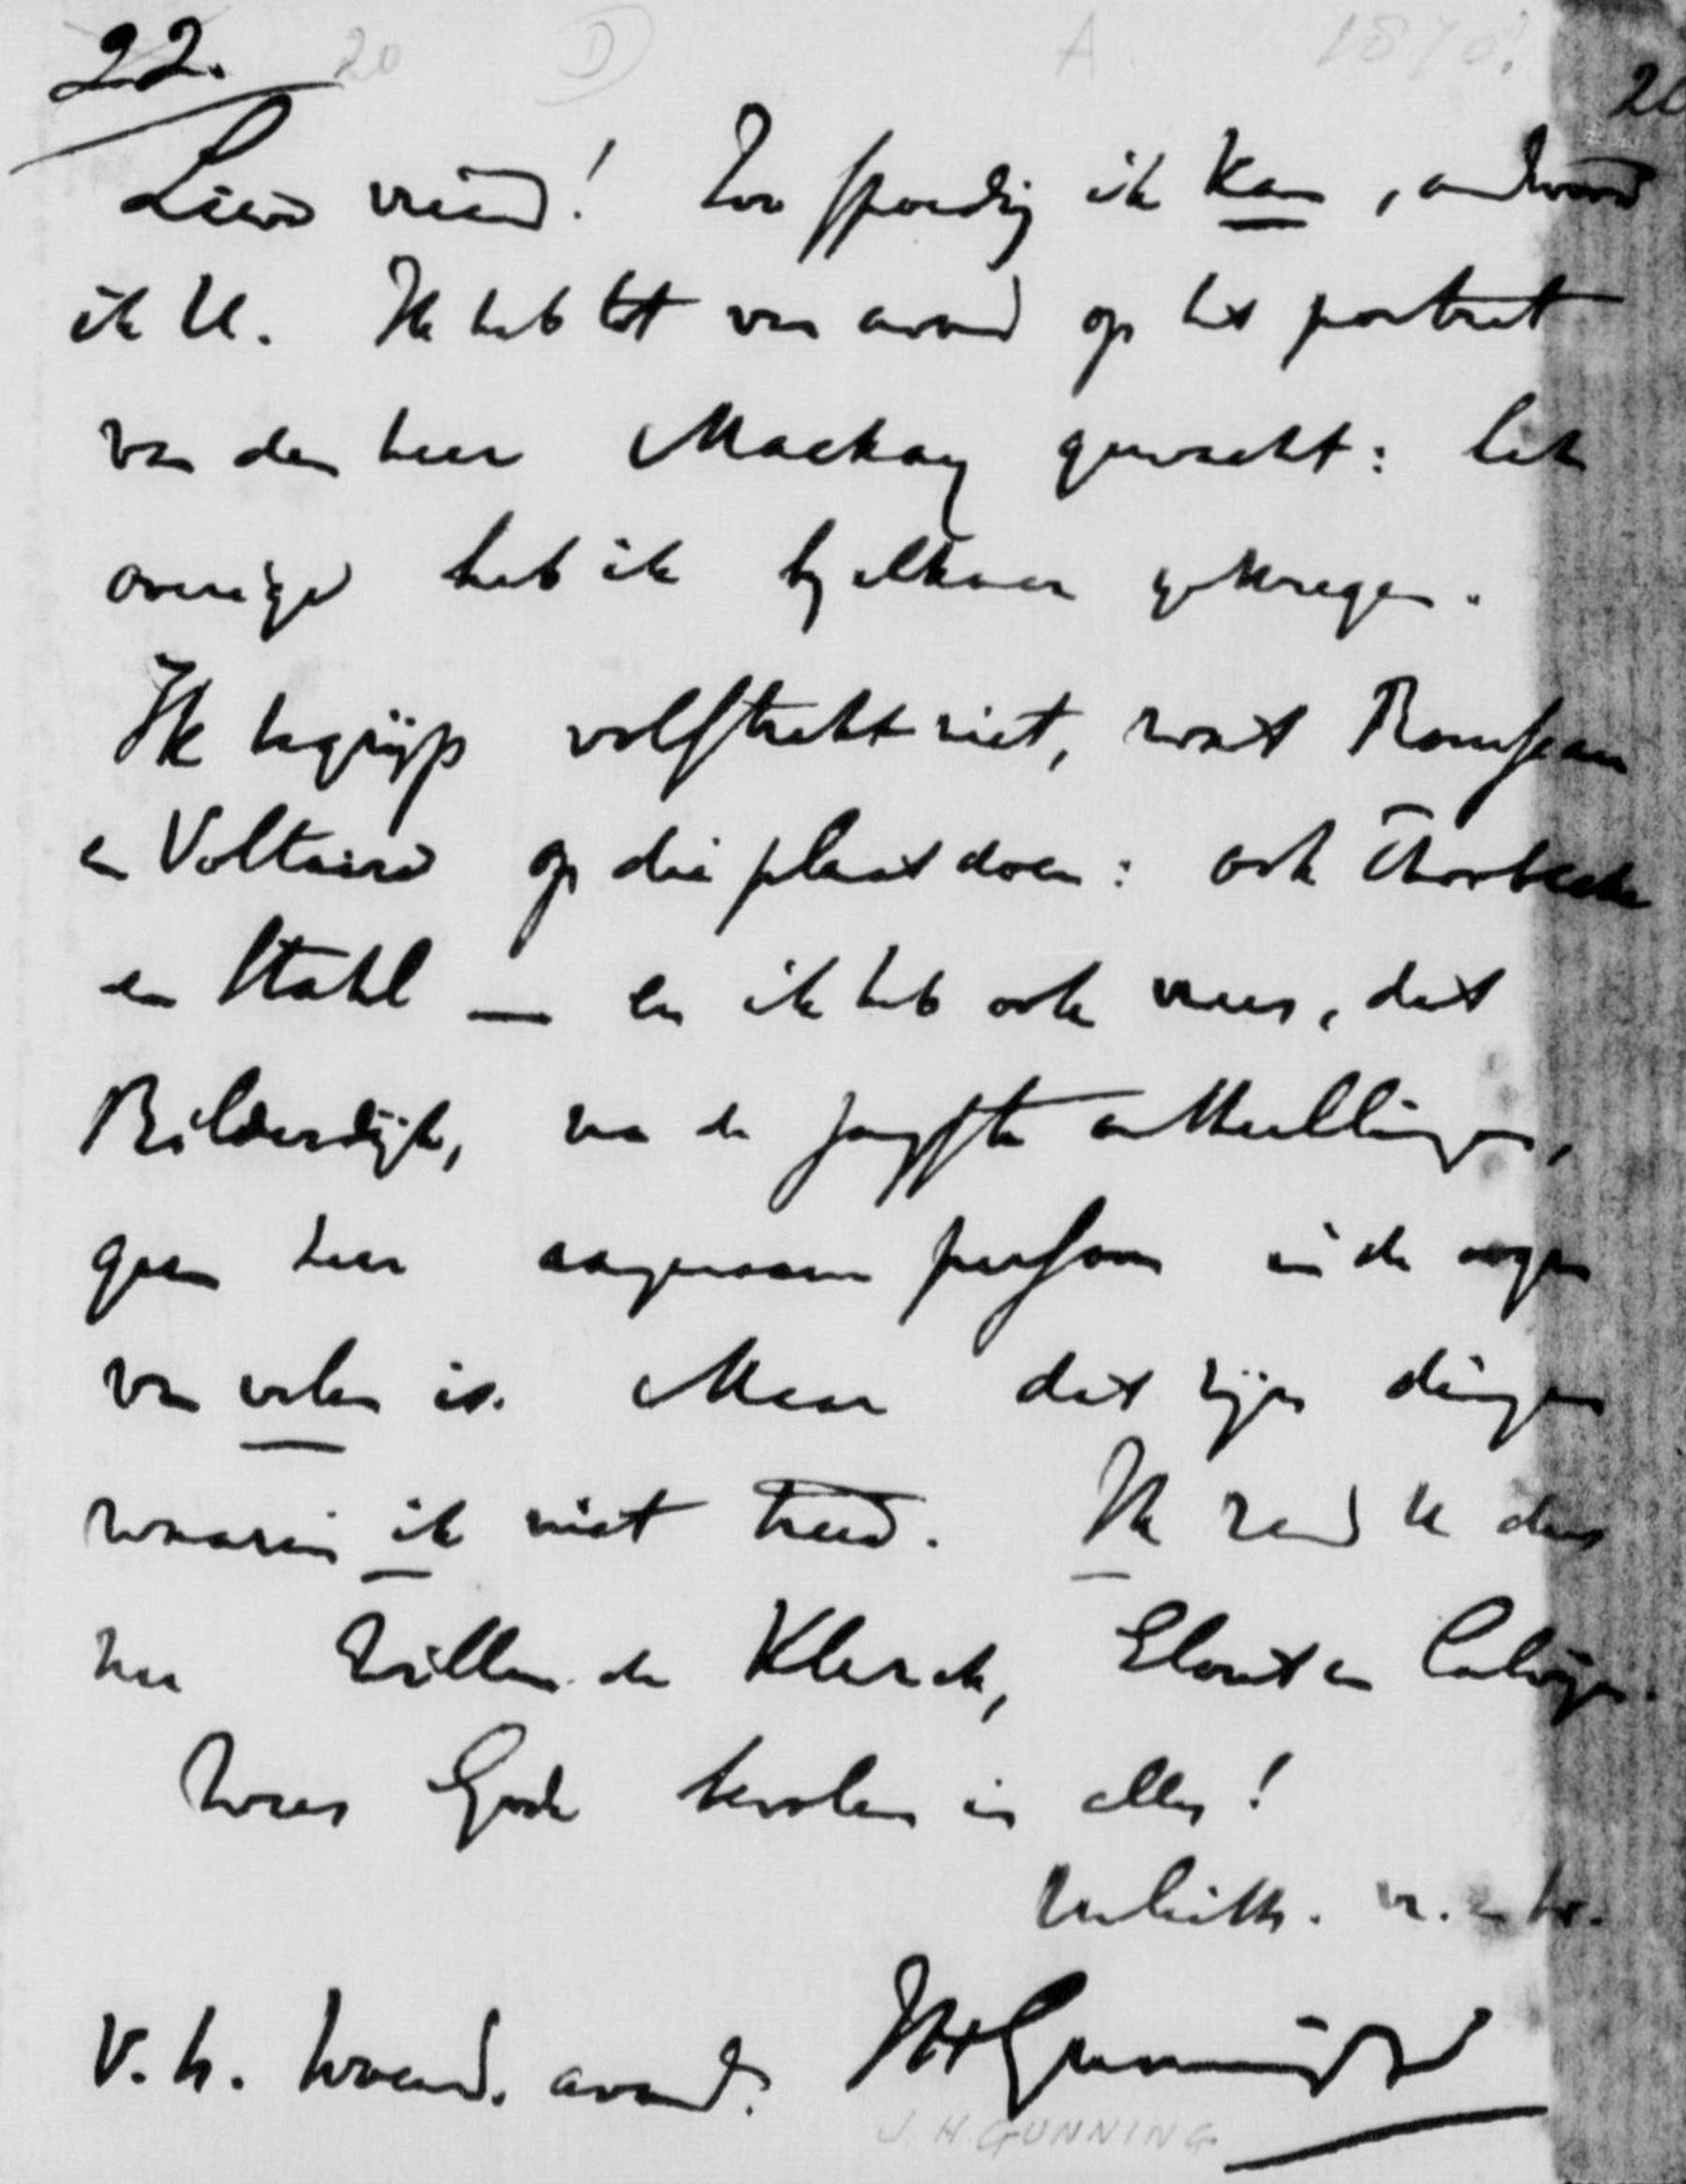 22. 20 D A. 1870? 20
Lieve vriend! Zoo spoedig ik kan, antwoord
ik U. Ik heb tot van avond op het portret
van den heer Mackay gewacht: het
overige heb ik bij elkaar gekregen.
Ik begrijp volstrekt niet, wat Rousseau
en Voltaire op die plaat doen: ook Thorbecke
en Stahl — en ik heb ook vrees, dat
Bilderdijk, na de jongste onthullingen,
geen heer aangenaam persoon in de oogen
van velen is. Maar dat zijn dingen
waarin ik niet treed. Ik zend U dus
hier Willem de Klerck, Elout en Calvijn.
Wees Gode bevolen in alles!
v. h. Woensd. avond. JHGunning Jr
J. H. GUNNING